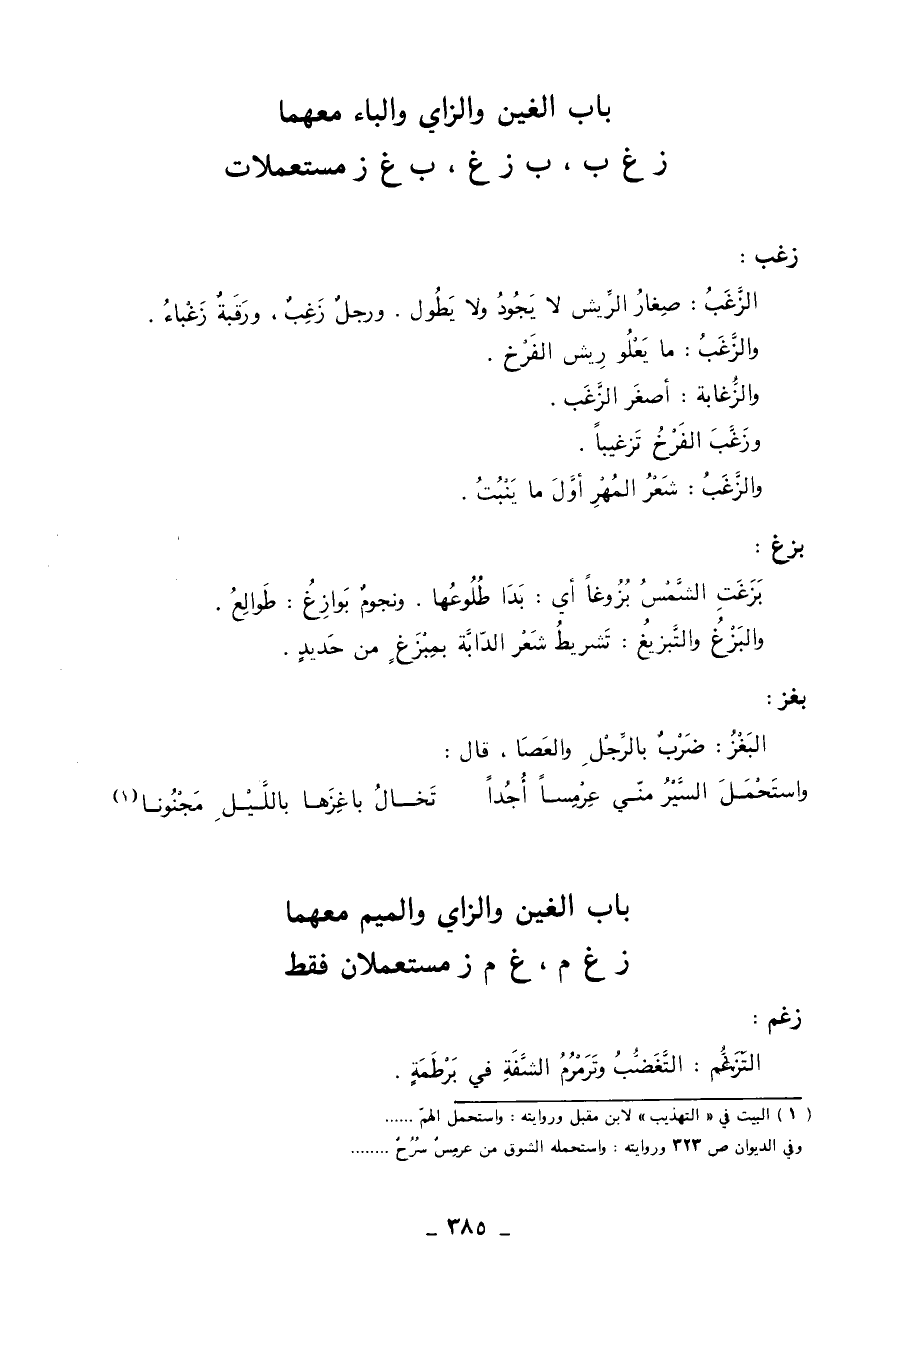 باب الغين والزاي والباء معهما
ز غ ب ، ب ز غ ، ب غ ز مستعملات
زغب :
الزَّغَبُ : صِغارُ الرِّيش لا يَجُودُ ولا يَطُول . ورجلٌ زَغِبٌ ، ورَقَبةٌ زَغْباءُ .
والزَّغَبُ : ما يَعْلُو رِيش الفَرْخ .
والزُّغابة : أصغَر الزَّغَب .
وزَغَّبَ الفَرْخُ تَزغيباً .
والزَّغَبُ : شَعْرُ المُهْرِ أوَّلَ ما يَنْبُتُ .
بزغ :
بَزَغَتِ الشَّمْسُ بُزُوغاً أي : بَدَا طُلُوعُها . ونجومٌ بَوازِغُ : طَوالِعُ .
والبَزْغُ والتَّبزيغُ : تَشريطُ شَعْر الدّابَّة بمِبْزَغٍ من حَديدٍ .
بغز :
البَغْزُ : ضَرْبٌ بالرِّجْلِ والعَصَا ، قال :
واستَحْمَلَ السَّيْرُ منّي عِرْمِساً أُجُداً تَخالُ باغِزَها باللَّيْلِ مَجْنُونا (١)
باب الغين والزاي والميم معهما
ز غ م ، غ م ز مستعملان فقط
زغم :
التَّزَغُّم : التَّغَضُّبُ وتَرَمْرُمُ الشَّفَةِ في بَرْطَمَةٍ .
( ١ ) البيت في « التهذيب » لابن مقبل وروايته : واستحمل الهمّ ......
وفي الديوان ص ٣٢٣ وروايته : واستحمله الشوق من عرمِسٌ سُرُحٌ ........
ـ ٣٨٥ ـ